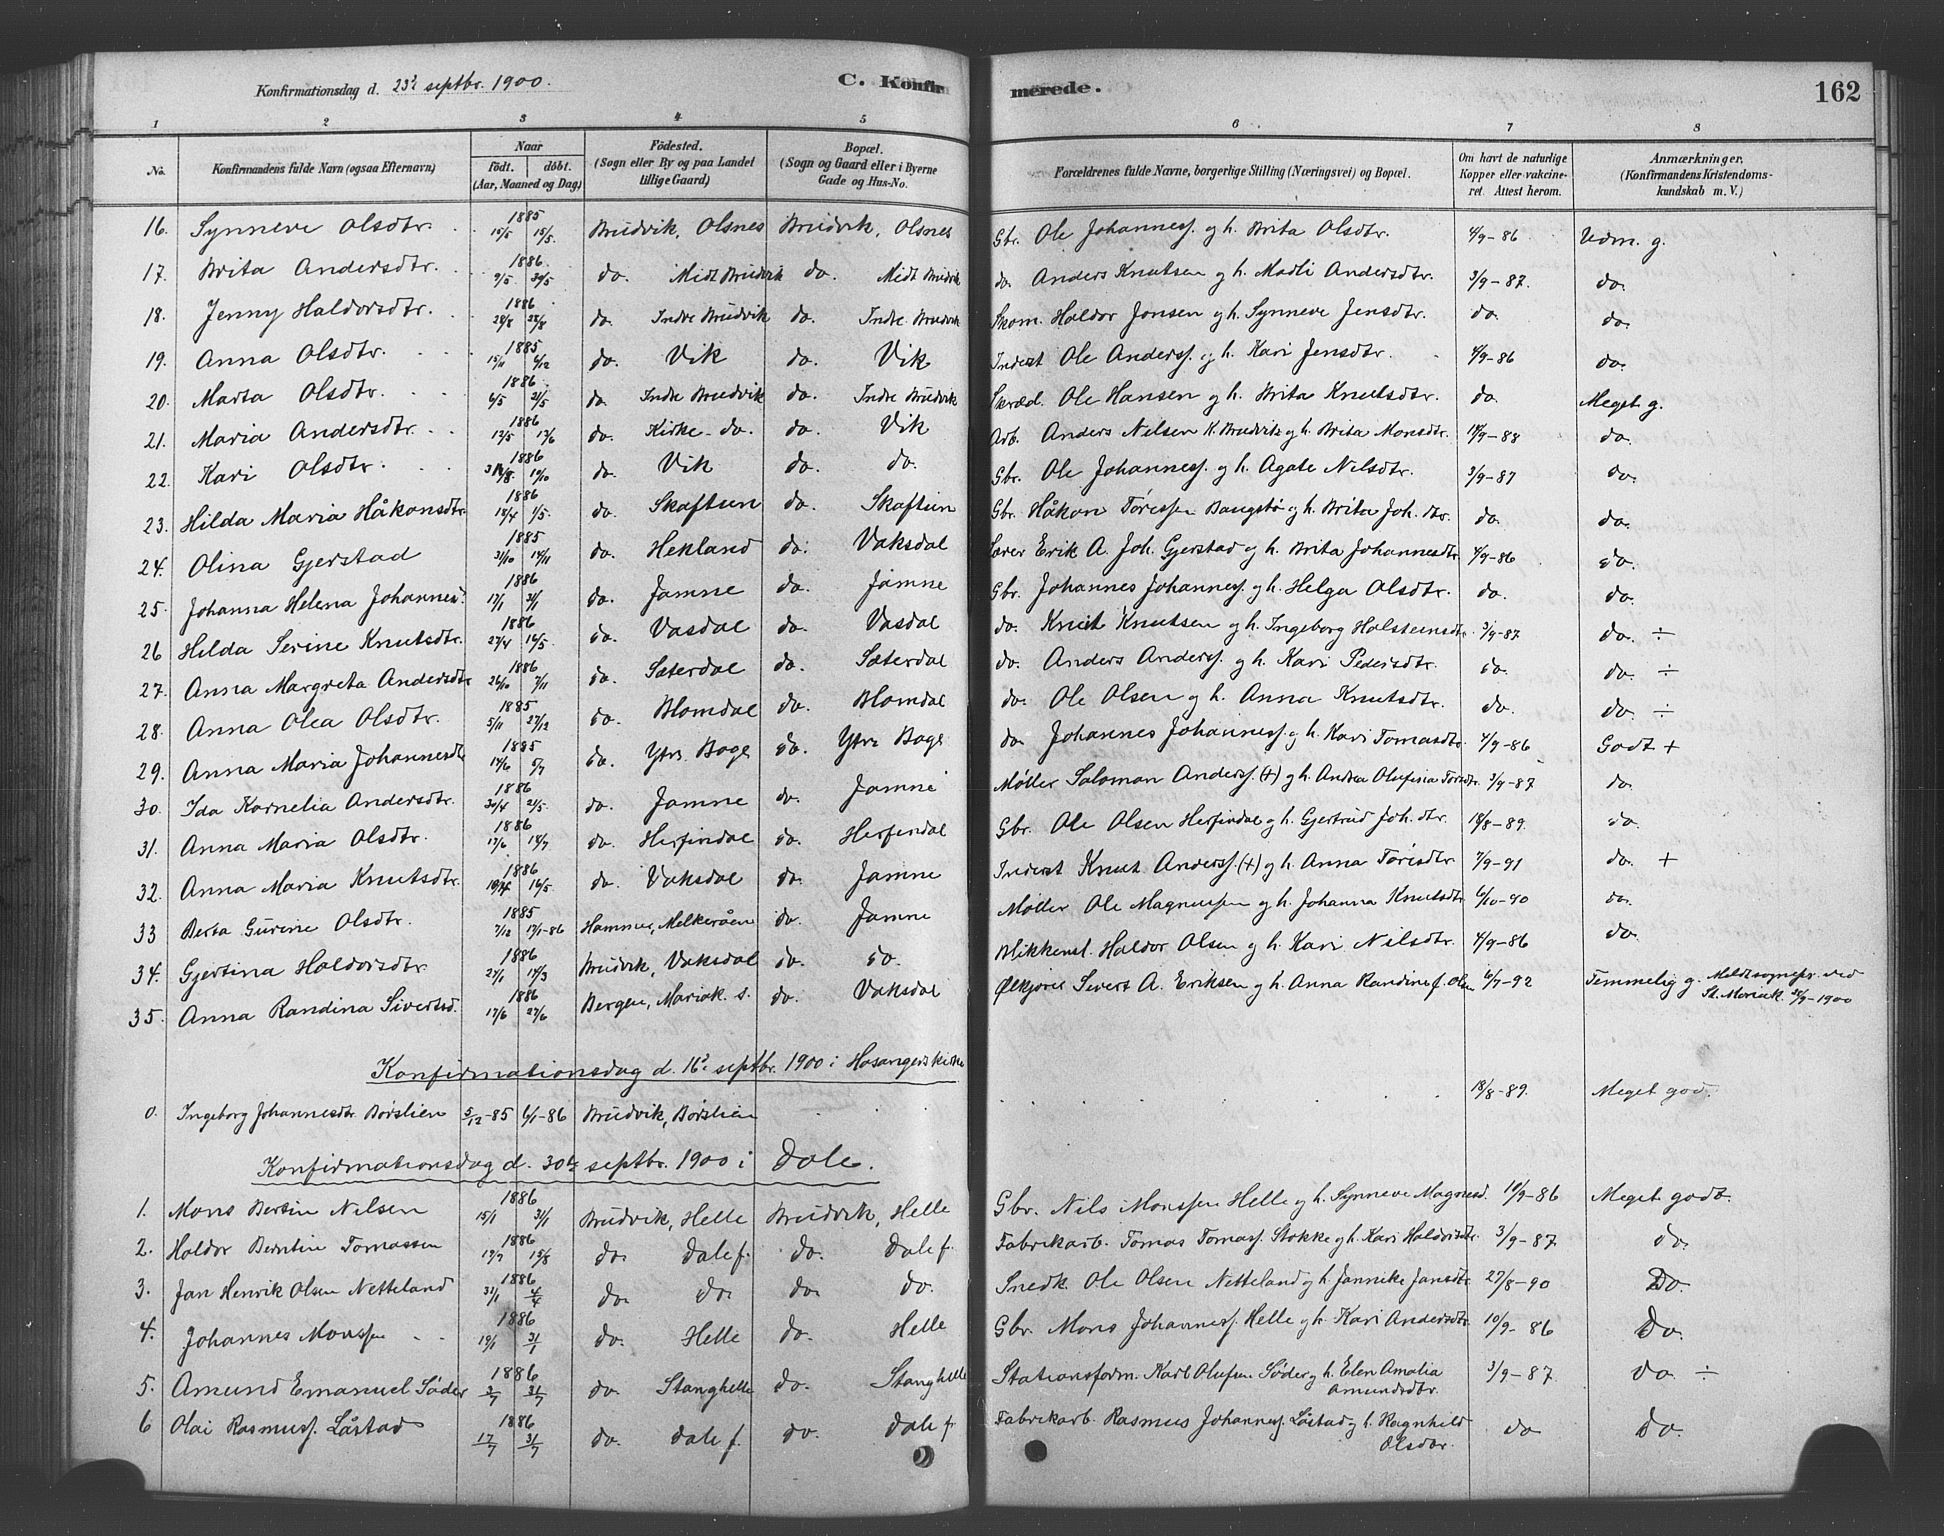 Konfirmationsdag d. 23d septbr. 1900. C. Konfirmerede. 162
1 2 3 4 5 6 7 8
No. Konfirmandens fulde Navn (ogsaa Efternavn) Naar födt. döbt. (Aar, Maaned og Dag) Födested. (Sogn eller By og paa Landet tillige Gaard) Bopæl. (Sogn og Gaard eller i Byerne Gade og Hus-No. Forældrenes fulde Navne, borgerlige Stilling (Næringsvei) og Bopæl. Om havt de naturlige Kopper eller vakcineret. Attest herom. Anmærkninger. (Konfirmandens Kristendomskundskab m. V.)
16. Synneve Olsdtr. 1885 15/5 15/5. Brudvik, Olsnes Brudvik, Olsnes Gbr. Ole Johanness. og h. Brita Olsdtr. 4/9-86 Udm. g.
17. Brita Andersdtr. 1886 9/5 30/5 do. Midt Brudvik do. Midt Brudvik do. Anders Knutsen og h. Madli Andersdtr. 3/9-87. do.
18. Jenny Haldorsdtr. 1886 28/8 28/8 do. Indre Brudvik do. Indre Brudvik Skom. Haldor Jonsen og h. Synneve Jensdtr. do. do.
19. Anna Olsdtr. 1885 15/11 6/12 do. Vik do. Vik Inderst Ole Anderss. og h. Kari Jensdtr. 4/9-86 do.
20. Marta Olsdtr. 1886 6/5 21/5 do. Indre Brudvik do. Indre Brudvik Skræd. Ole Hansen og h. Brita Knutsdtr. do. Meget g.
21. Maria Andersdtr. 1886 12/5 13/6 do. Kirke- do. do. Vik Arb. Anders Nilsen K. Brudvik og h. Brita Monsdtr. 18/9-88 do.
22. Kari Olsdtr. 1886 19/10 do. Vik do. do. Gbr. Ole Johanness. og h. Agate Nilsdtr. 3/9-87 do.
23. Hilda Maria Håkonsdtr 1886 18/4 1/5. do. Skaftun do. Skaftun Gbr. Håkon Tøressen Baugstø og h. Brita Joh. dtr. do. do.
24. Olina Gjerstad 1885 31/10 14/11 do. Hekland do. Vaksdal Lærer Erik A. Joh. Gjerstad og h. Brita Johannesdtr. 4/9-86 do.
25. Johanna Helena Johannesd. 1886 17/1 31/1 do. Jamne do. Jamne Gbr. Johannes Johanness. og h. Helga Olsdtr. do. do.
26 Hilda Serine Knutsdtr. 1886 27/4 16/5. do. Vasdal do. Vasdal do. Knut Knutsen og h. Ingeborg Holsteinsdtr. 3/9-87 do. ÷
27. Anna Margreta Andersdtr 1886 26/10 7/11 do. Sæterdal do. Sæterdal do. Anders Anderss. og h. Kari Pedersdtr. do. do. ÷
28. Anna Olea Olsdtr. 1885 5/11 27/12 do. Blomdal do. Blomdal do. Ole Olsen og h. Anna Knutsdtr. do. do. ÷
29. Anna Maria Johannesdtr 1885 14/6 5/7 do. Ytre Boge do. Ytre Boge do Johannes Johanness. og h. Kari Tomasdtr. 4/9-86 Godt +
30. Ida Kornelia Andersdtr. 1886 30/4 21/5. do. Jamne do. Jamne Møller Saloman Anderss. (+) og h. Andrea Olufina Torsdtr. 3/9-87 do.
31. Anna Maria Olsdtr. 1886 17/6 18/7 do. Herfindal do. Herfindal Gbr. Ole Olsen Herfindal og h. Gjertrud Joh. dtr. 18/8-89. do.
32. Anna Maria Knutsdtr. 1886 16/5. do. Vaksdal do. Jamne Inderst Knut Anderss. (+) og h. Anna Tøresdtr. 7/9-91 do. +
33 Berta Gurine Olsdtr. 1885 7/12 17/1-86 Hammer, Melkeråen do. Jamne Møller Ole Magnussen og h. Johanna Knutsdtr 6/10-90 do.
34. Gjertina Haldorsdtr. 1886 27/1 14/3 Brudvik, Vaksdal do. do. Blikkensl. Haldor Olsen og h. Kari Nilsdtr. 4/9-86 do.
35. Anna Randina Siversd. 1886 17/6 27/6 Bergen, Mariak. s. do. Vaksdal Ølkjører Sivert A. Eriksen og h. Anna Randine f. Olsen 6/7-92 Temmelig g. Meldt sognepr. ved St. Mariak. 26/9-1900
Konfirmationsdag d. 16d septbr. 1900 i Hosangers kirke
0. Ingeborg Johannesdtr Børslien 5/12-85 6/1-86 Brudvik, Børslien 18/8-89. Meget god.
Konfirmationsdag d. 30te septbr. 1900 i Dale.
1. Mons Bertin Nilsen 1886 15/1 31/1 Brudvik, Helle Brudvik, Helle Gbr. Nils Monssen Helle og h. Synneve Magnesd. 10/9-86 Meget godt.
2. Haldor Berntin Tomassen 1886 17/7 15/8 do. Dale f. do. Dale f. Fabrikarb. Tomas Tomass. Stokke og h. Kari Haldorsdtr 3/9-87 do.
3. Jan Henrik Olsen Netteland 1886 31/1 4/4 do. do. do. do. Snedk. Ole Olsen Netteland og h. Jannike Jansdtr 27/8-90 Do.
4. Johannes Monssen 1886 19/1 31/1 do. Helle do. Helle Gbr. Mons Johanness. Helle og h. Kari Andersdtr 10/9-86 Do.
5. Amund Emanuel Søder 1886 2/7 31/7 do. Stanghelle do. Stanghelle Stationsform. Karl Olufsen Søder og h. Elen Amalia Amundsdtr. 3/9-87. do. ÷
6 Olai Rasmuss. Låstad 1886 17/7 31/7 do. Dale f. do. Dale f. Fabrikarb. Rasmus Johanness. Låstad og h. Ragnhild Olsdtr. do Do.